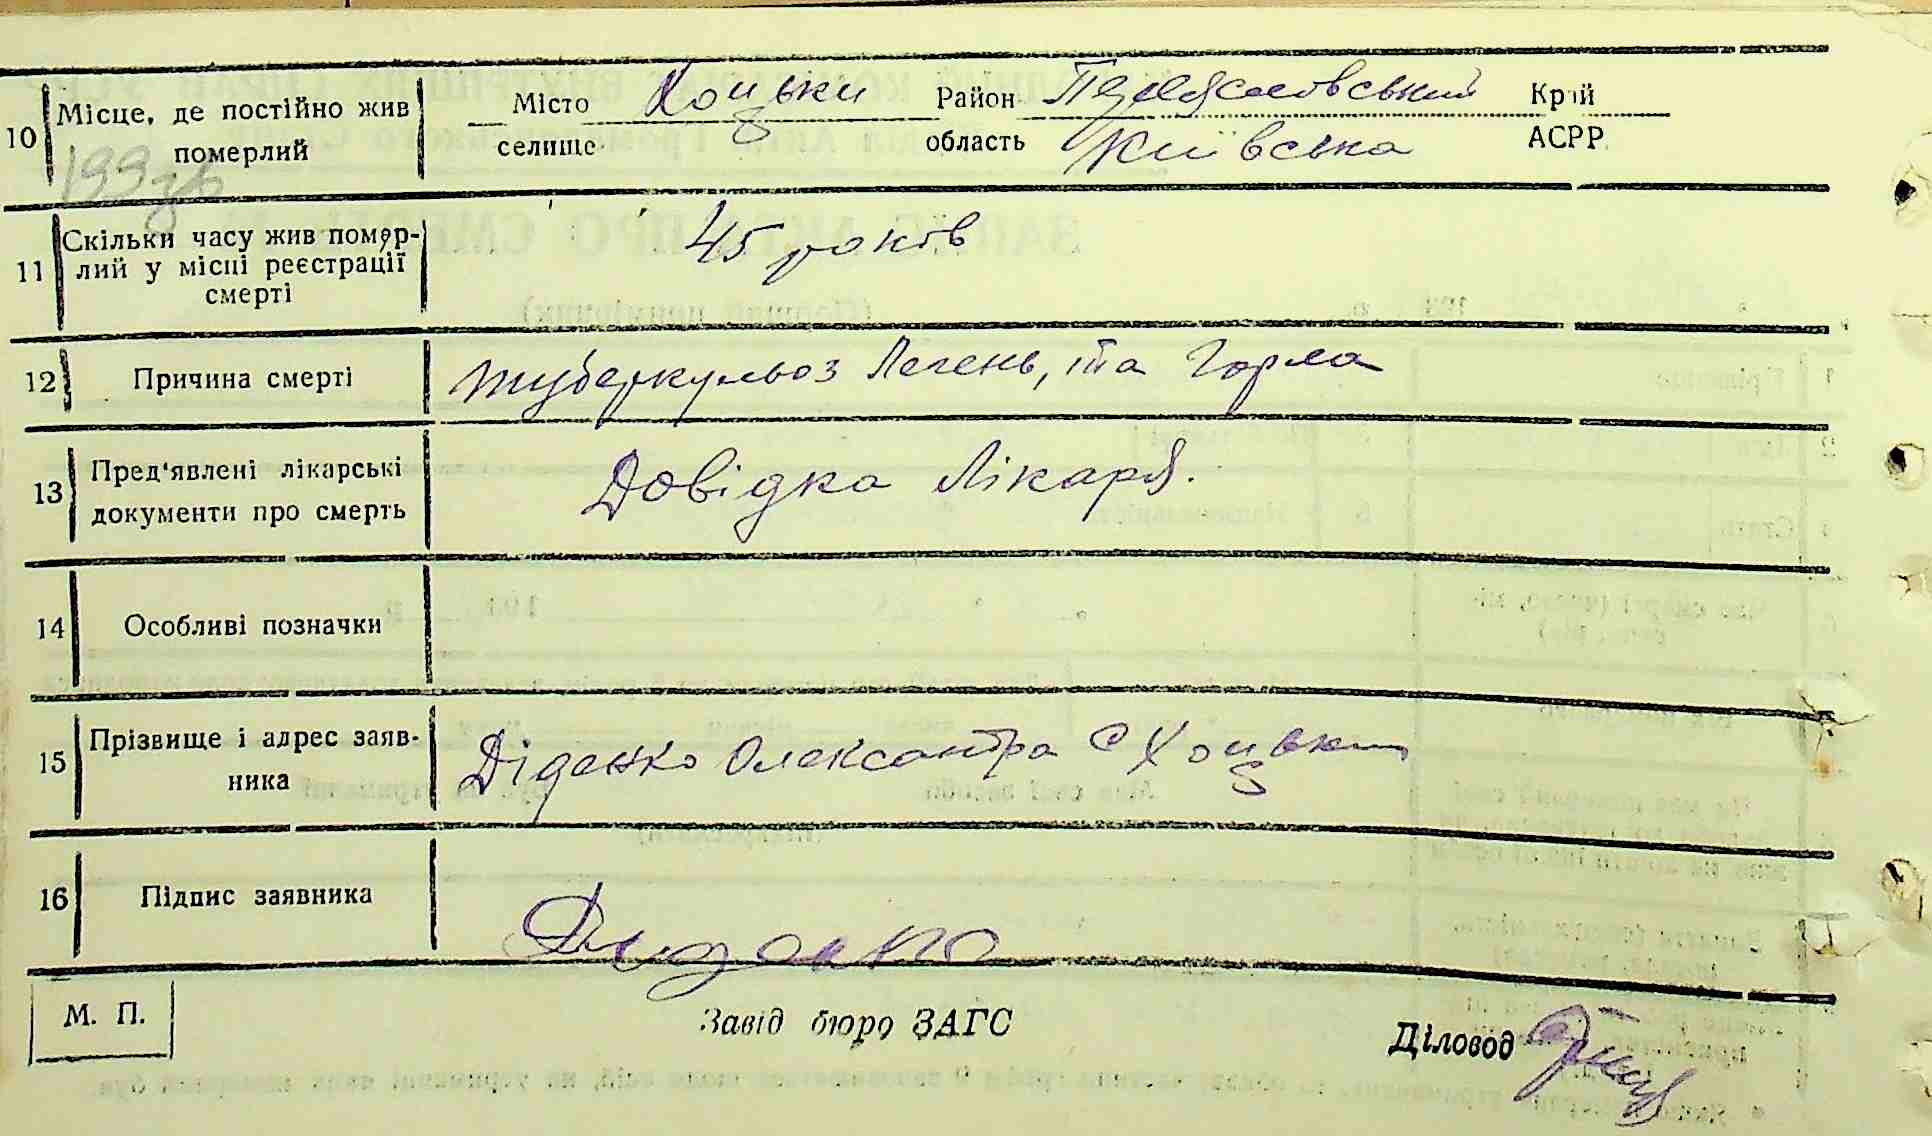 10 Місце, де постійно жив померлий
Місто селище Хоцьки Район Переяславський Край
область Київська АСРР.
199зв
11 Скільки часу жив помер-
лий у місці реєстрації
смерті
45 років
12 Причина смерті
туберкульоз Легень, та Горла
13 Пред'явлені лікарські
документи про смерть
Довідка Лікаря.
14 Особливі позначки
15 Прізвище і адрес заяв-
ника
Діденко Олександра С Хоцьки
16 Підпис заявника
Диденко
М. П.
Завід бюро ЗАГС
Діловод